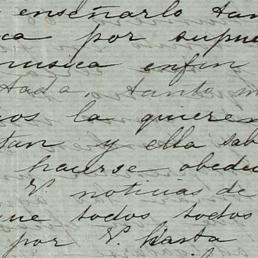 enseñarlo tan
ca por supue
musica enfin
tada, tanto m
os la quieren
tan y ella sab
hacerse obede
V. noticias de
ue todos todos
por V. hasta